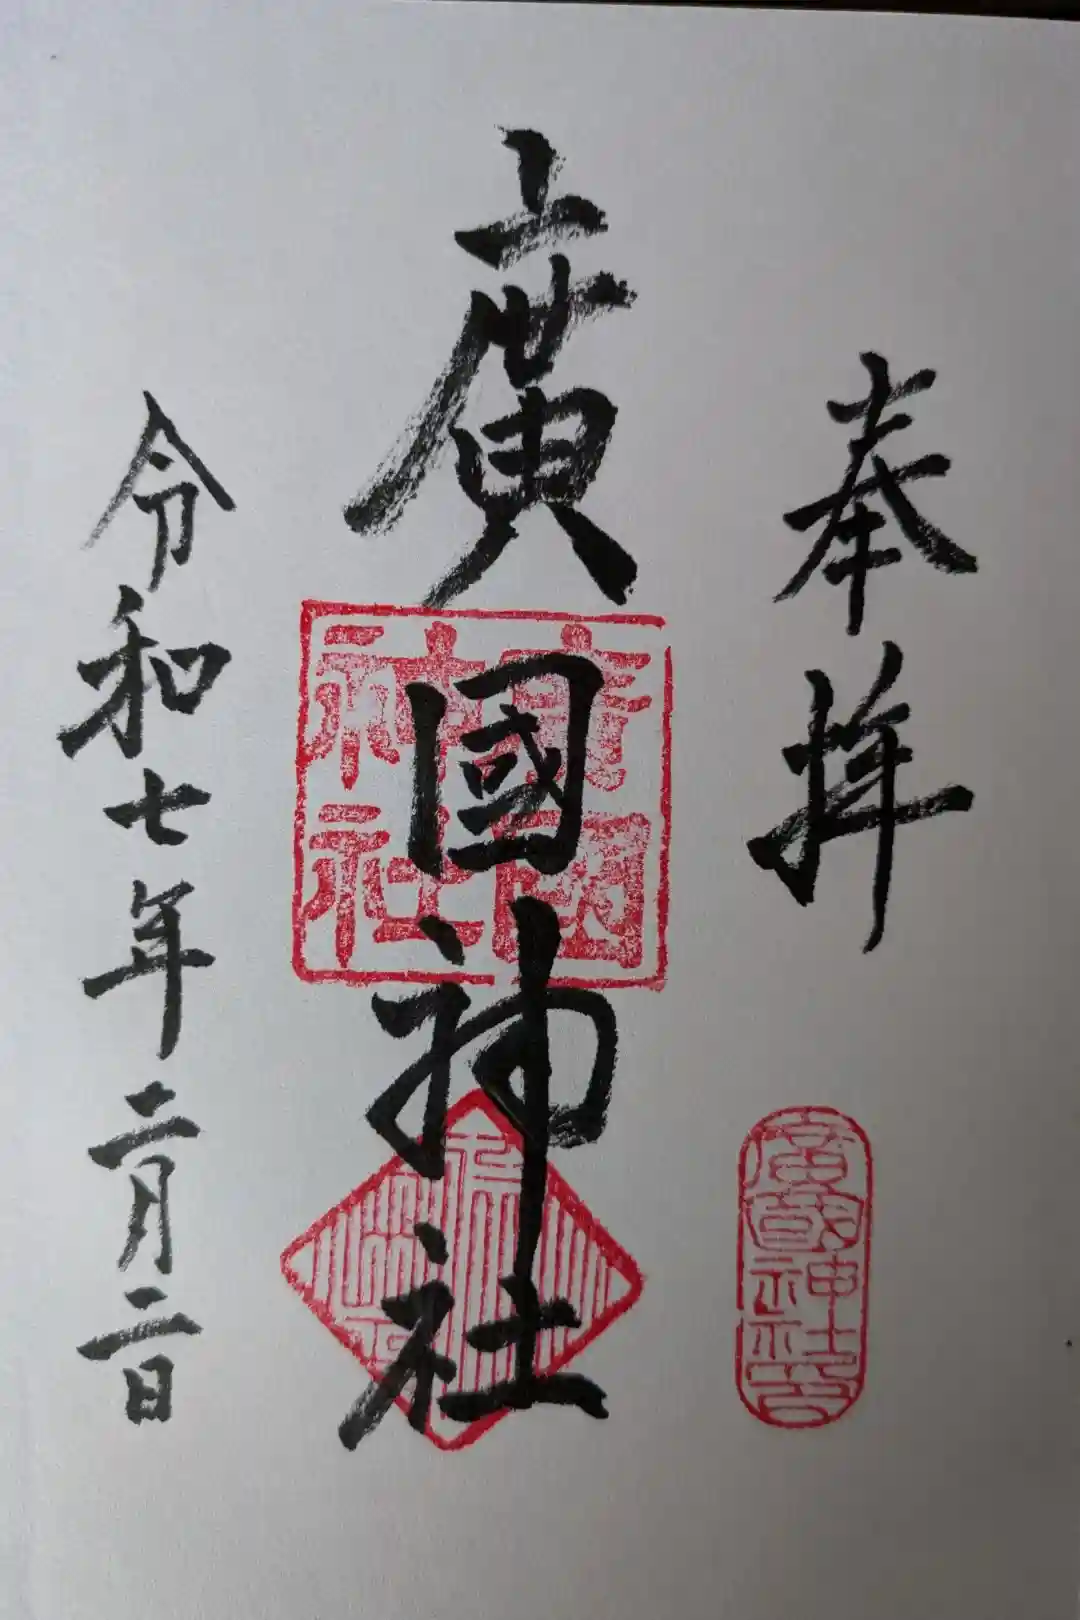 奉拝
廣國神社
令和七年二月二日
廣國
神社